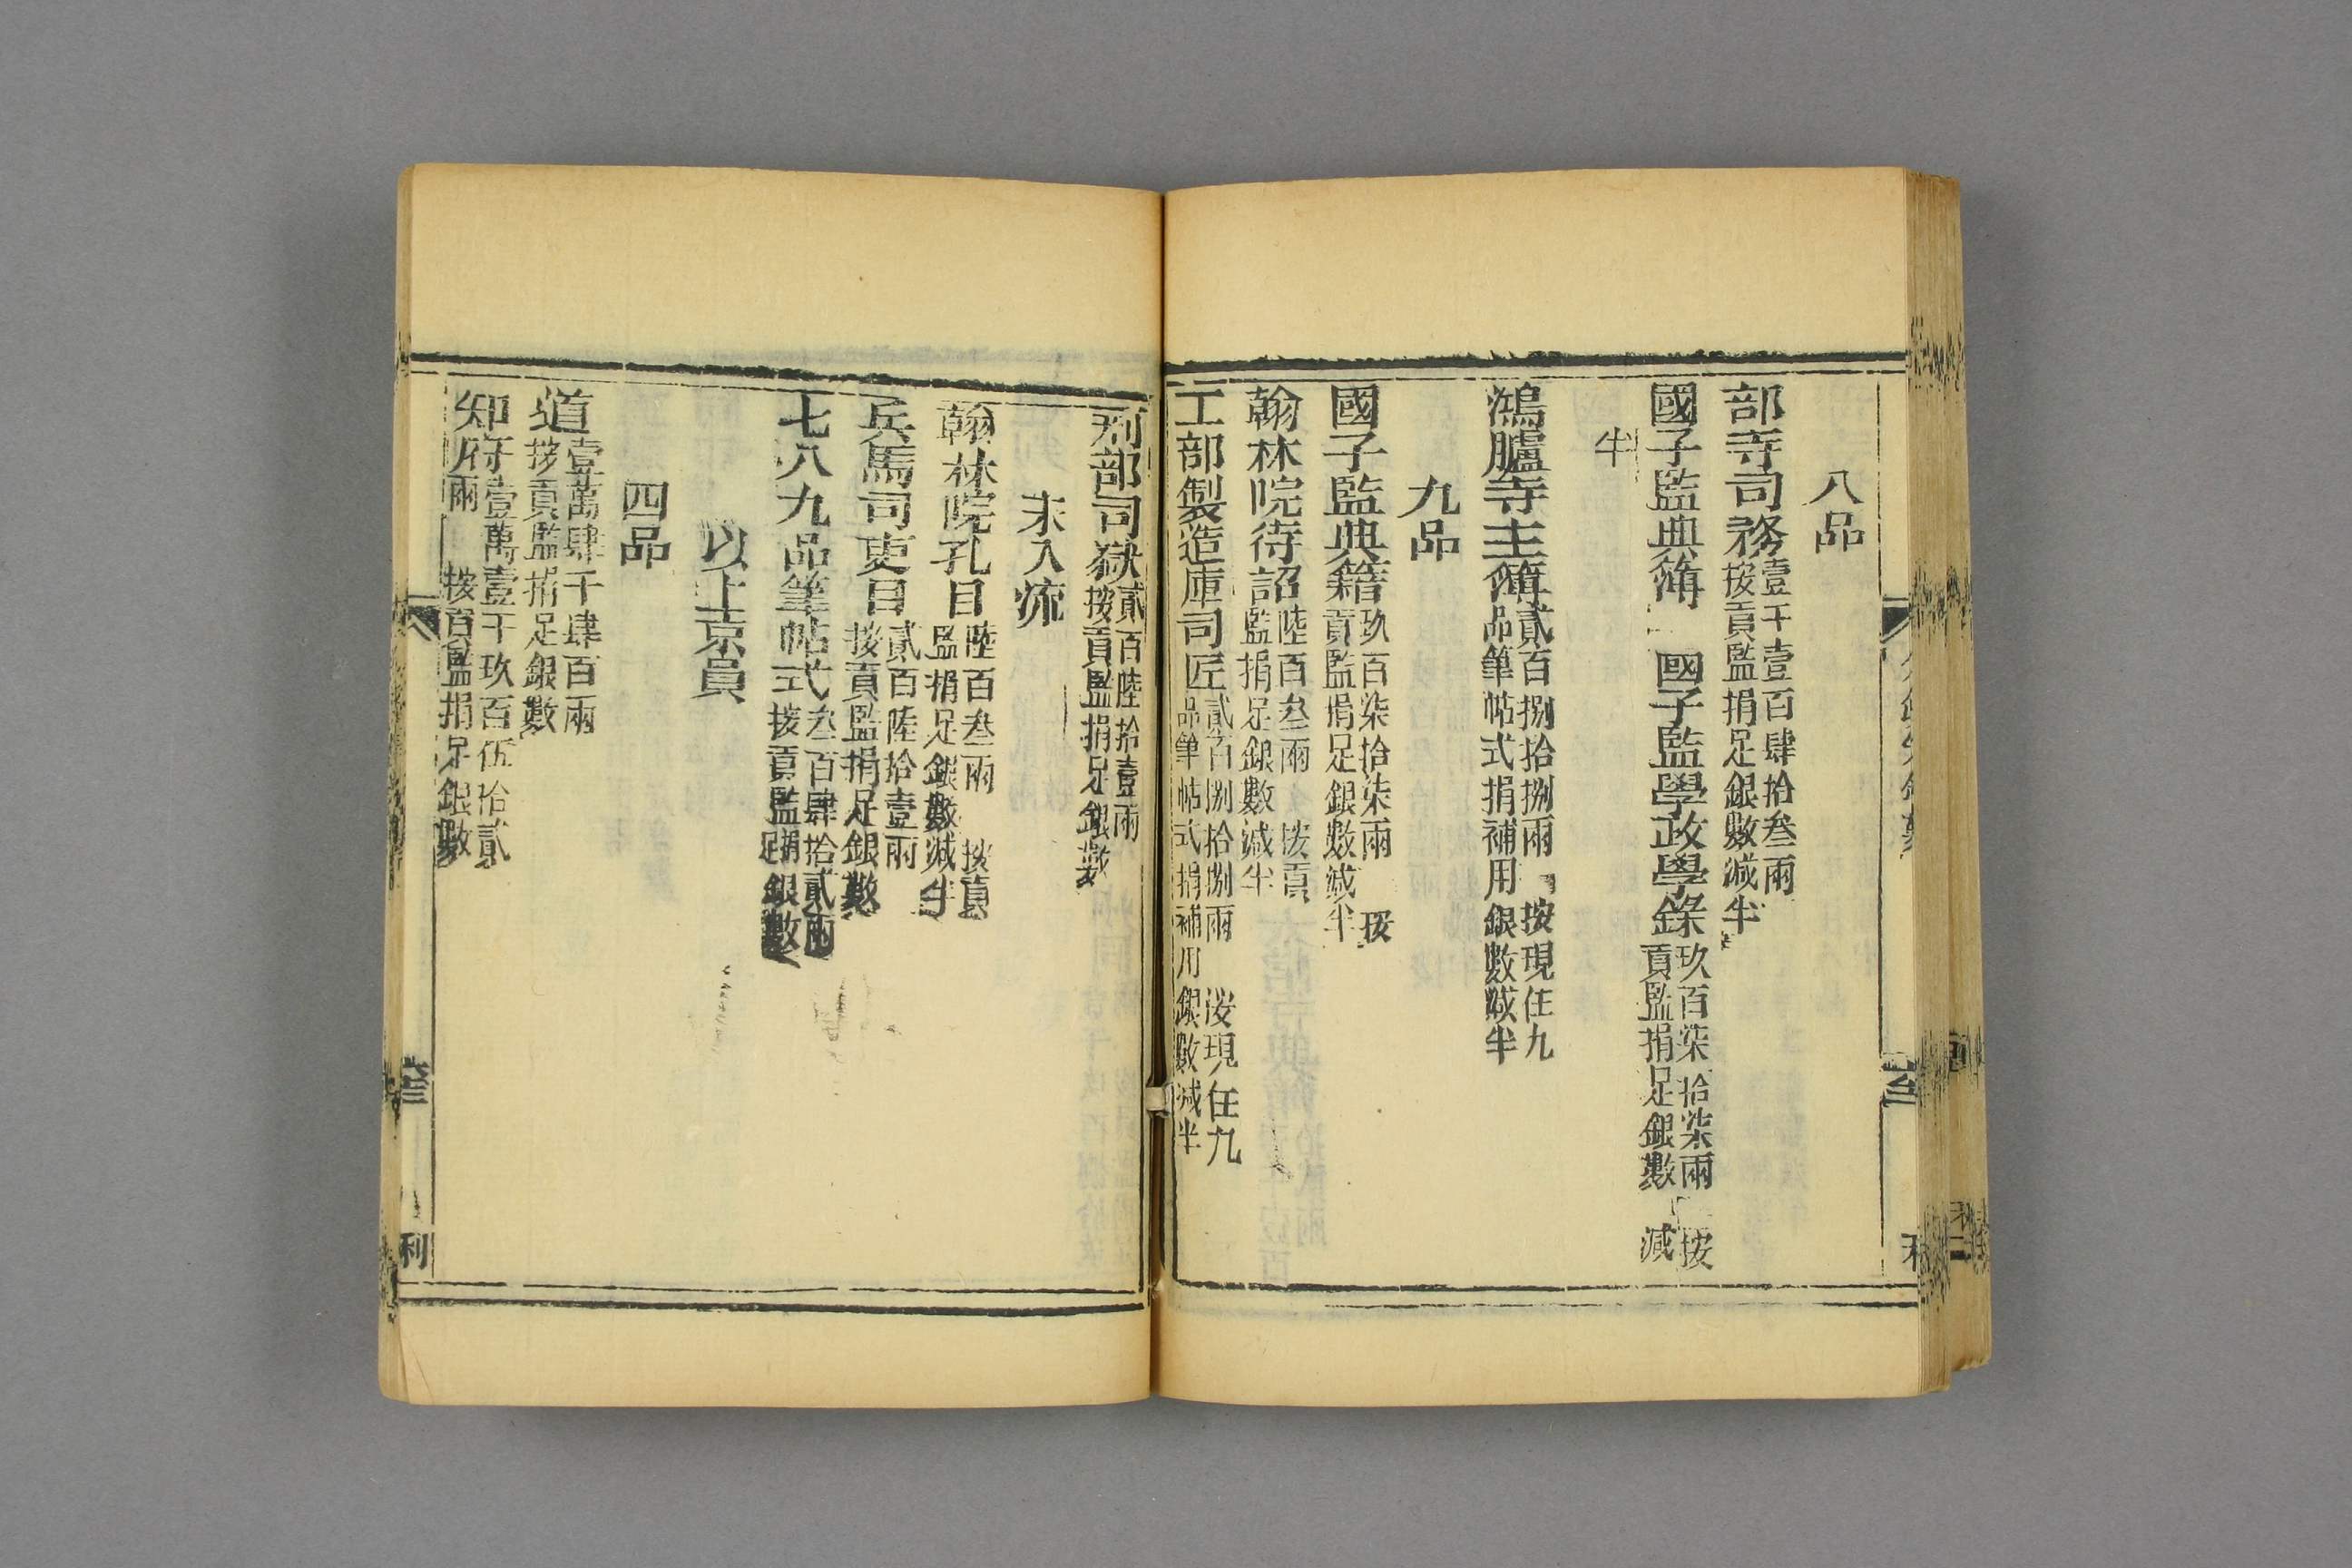 八品
部寺司務壹千壹百肆拾叁兩
按貢監捐足銀數減半
國子監典簿 國子監學政學錄玖百柒拾柒兩 按
貢監捐足銀數 減
半
鴻臚寺主簿貳百捌拾捌兩 按現任九
品筆帖式捐補用銀數減半
九品
國子監典籍玖百柒拾柒兩 按
貢監捐足銀數減半
翰林院待詔陸百叁兩 按貢
監捐足銀數減半
工部製造庫司匠貳百捌拾捌兩 按現任九
品筆帖式捐補用銀數減半
刑部司獄貳百陸拾壹兩
按貢監捐足銀數
未入流
翰林院孔目陸百叁兩 按貢
監捐足銀數減半
兵馬司吏目貳百陸拾壹兩
按貢監捐足銀數
七八九品筆帖式叁百肆拾貳兩
按貢監捐足銀數
以上京員
四品
道壹萬肆千肆百兩
按貢監捐足銀數
知府壹萬壹千玖百伍拾貳
兩 按貢監捐足銀數
利